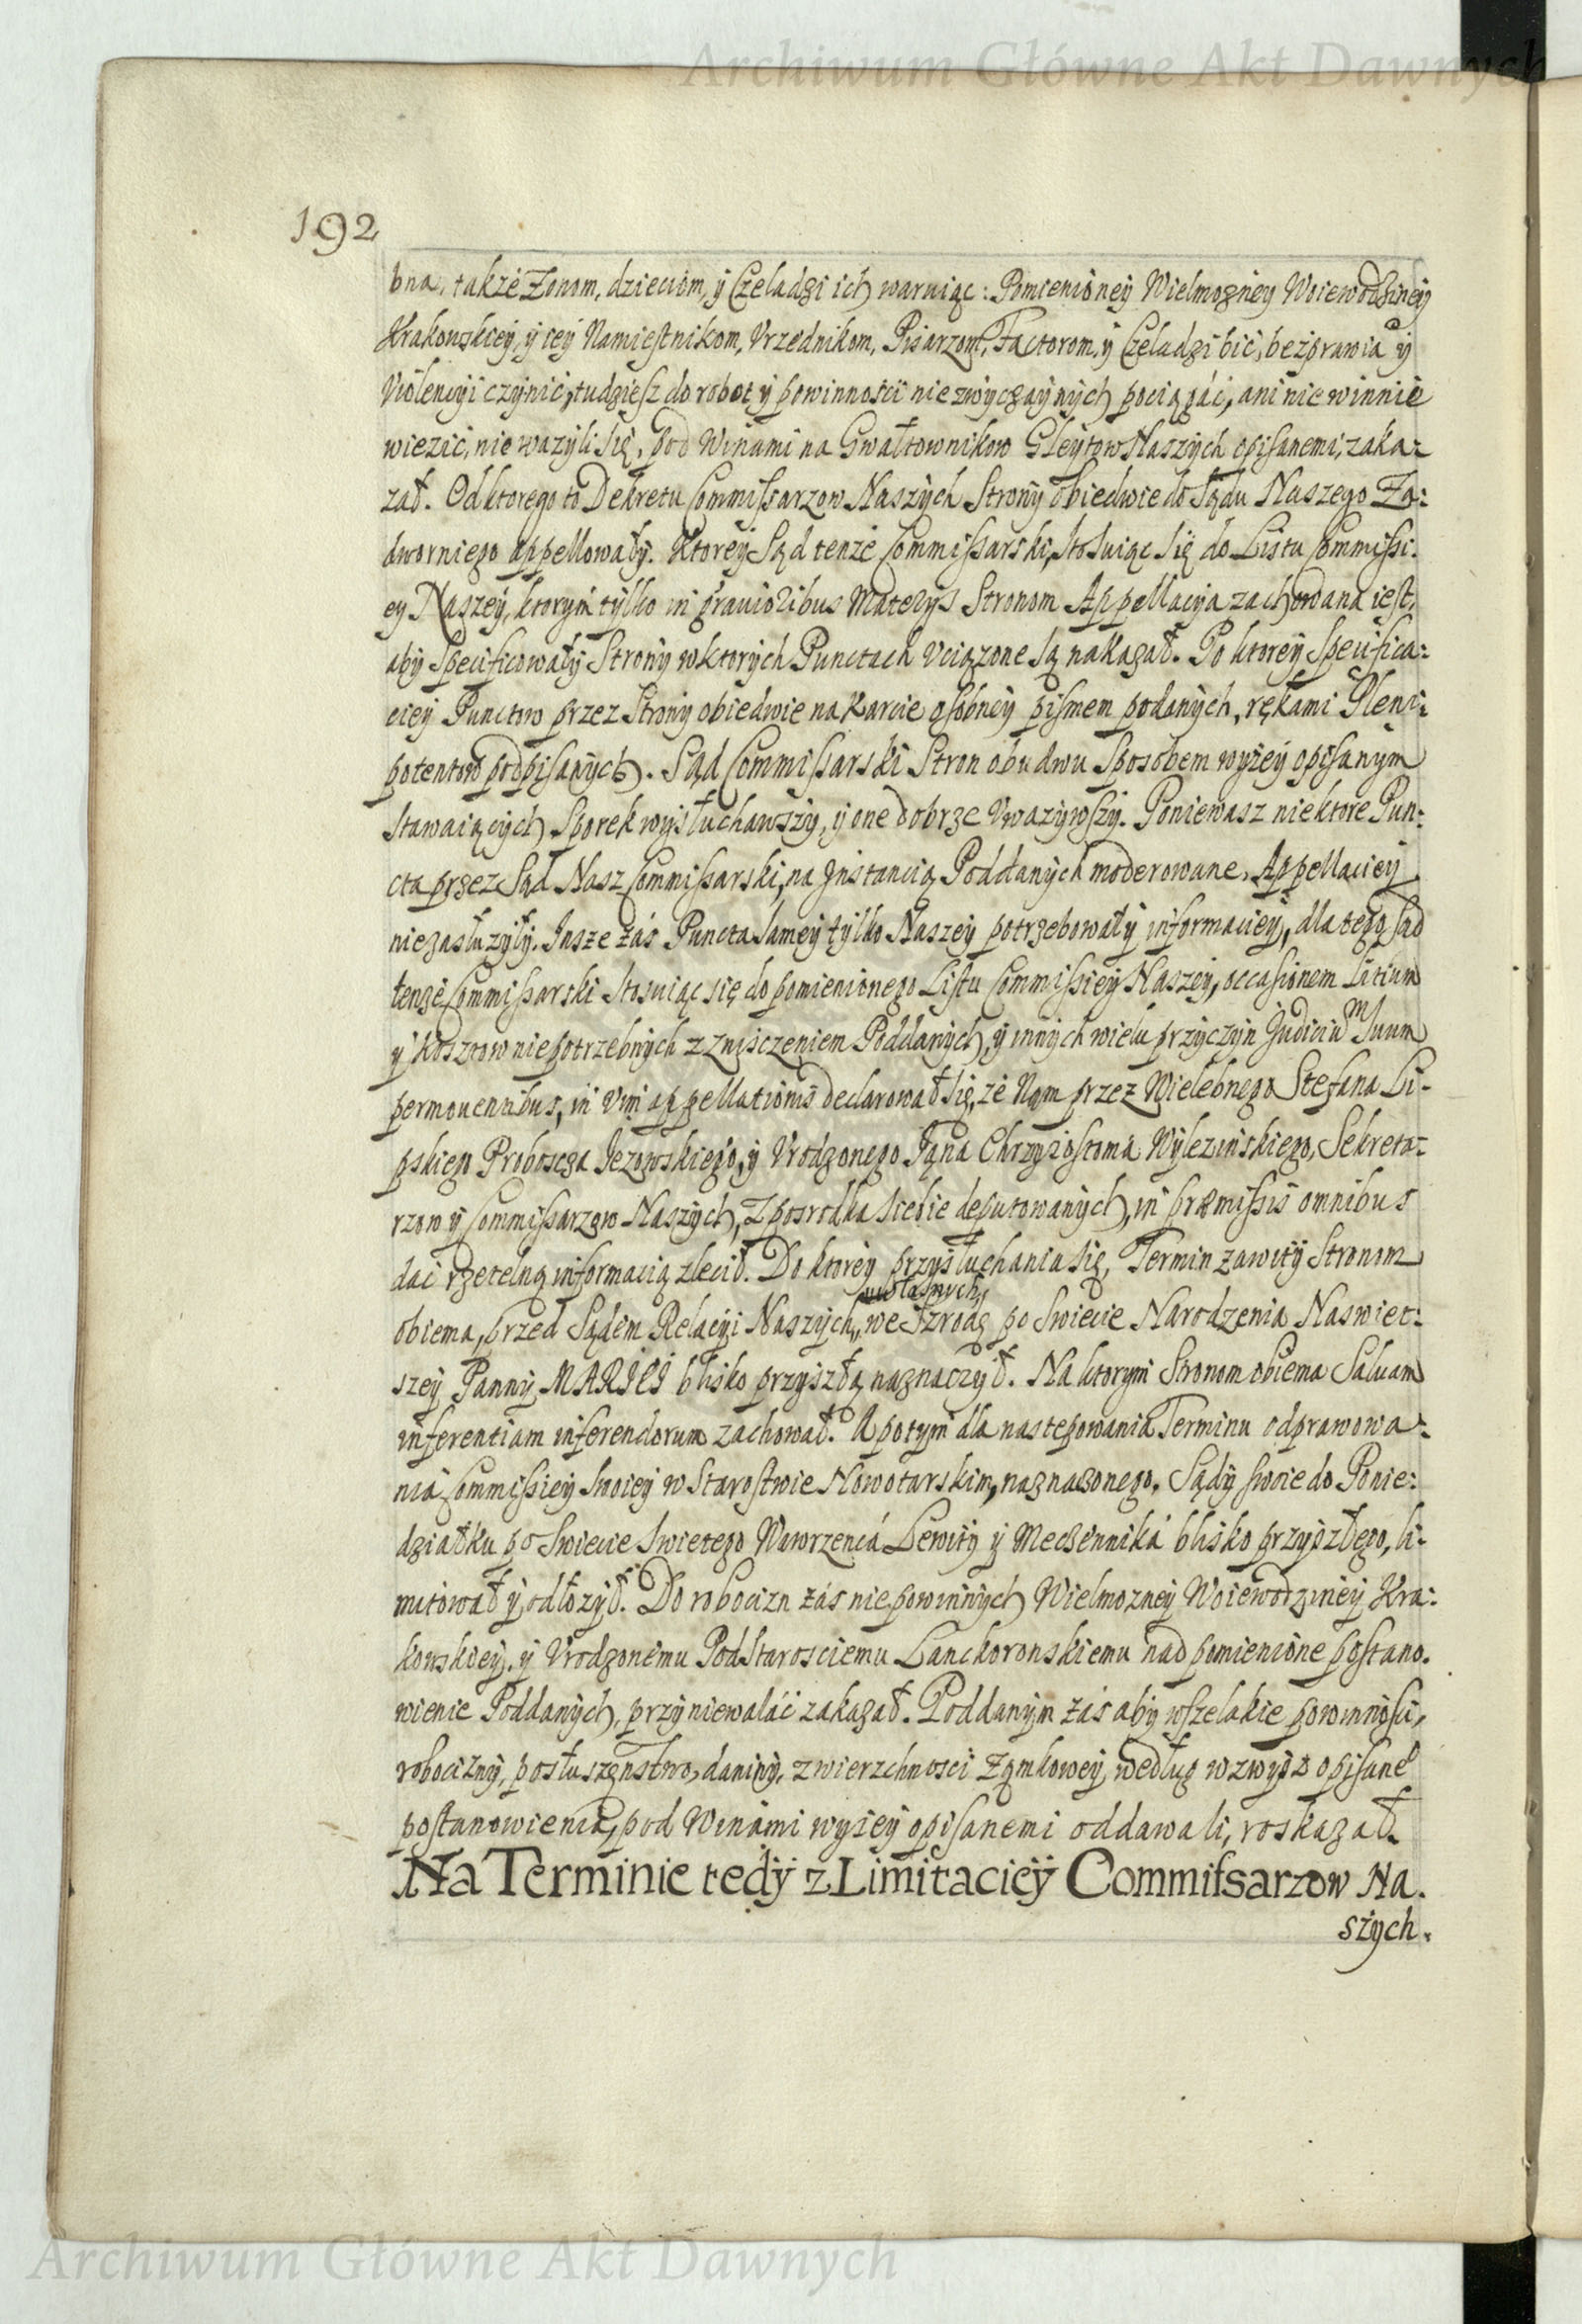 Archiwum Główne Akt Dawnych
192
bna, także Zonom, dzieciom, ÿ Czeladzi ich waruiąc: Pomienioneÿ Wielmozneÿ Woiewodzineÿ
Krakowskieÿ, ÿ ieÿ Namiestnikom, Vrzednikom, Pisarzom, Factorom, ÿ Czeladzi bić, beżprawia ÿ
Violencÿi czÿnić, tudziesz do robot ÿ powinności niezwÿczaÿnÿch pociągáć, ani niewinnie
wiezić, nie wazÿli się, pod Winami na Gwałtownikow Gleÿtow Naszÿch opisanemi, zaka:
zał. Od ktorego to Dekretu Commissarzow Naszÿch Stronÿ obiedwie do Sądu Naszego Za:
dworniego appellowałÿ. Ktoreÿ Sąd tenże Commissarski, stosuiąc się do Listu Commissi:
eÿ Naszeÿ, ktorÿm tÿlko in grauioribus Materÿs Stronom Appellacÿa zachowana iest,
abÿ specificowałÿ Stronÿ w ktorÿch Punctach Vciązone są nakazał. Po ktoreÿ specifica:
cieÿ Punctow przez Stronÿ obiedwie na Karcie osobneÿ pismem podanÿch, rękami Pleni:
potentow podpisanÿch. Sąd Commissarski Stron obudwu sposobem wÿżeÿ opisanÿm
stawaiącÿch Sporek wÿsłuchawszÿ, ÿ one dobrze Vwazÿwszÿ. Poniewasz niektore Pun:
cta przez Sąd Nasz Commissarski, na Instancią Poddanÿch moderowane, Appellacieÿ
niezasłuzÿłÿ. Insze záś Puncta sameÿ tÿlko Naszeÿ potrzebowałÿ informacieÿ, dla tego Sąd
tenże Commissarski stosuiąc się do pomienionego Listu Commissieÿ Naszeÿ, occasionem Litium
ÿ Kosztow niepotrzebnÿch z znisczeniem Poddanÿch, ÿ innÿch wielu przÿczÿn Judiciuͫ suum
permouentibus, in Vim appellationis declarował się, że Nam przez Wielebnego Stefana Li-
pskiego Proboscza Jezowskiego, ÿ Vrodzonego Jana Chrzÿzostoma Wÿlezinskiego, Sekreta:
rzow ÿ Commissarzow Naszÿch, z posrodka siebie deputowanÿch, in præmissis omnibus
dać rzetelną informacią zlecił. Do ktoreÿ przÿsłuchania się, Termin zawitÿ Stronom
własnÿch,
obiema, przed Sądem Relacÿi Naszÿch, we Szrodę po Swiecie Narodzenia Naswiet:
szeÿ Pannÿ MARIEI blisko przÿszłą naznaczÿł. Na ktorÿm Stronom obiema Saluam
inferentiam inferendorum zachował. A potÿm dla nastepowania Terminu odprawowa:
nia Commissieÿ swoieÿ w Starostwie Nowotarskim, naznaczonego, Sądÿ swoie do Ponie:
działku po Swiecie Swietego Wawrzencá Lewitÿ ÿ Meczennika blisko przÿszłego, li:
mitował ÿ odłozÿł. Do robocizn záś niepowinnÿch Wielmozneÿ Woiewodzineÿ Kra:
kowskieÿ, ÿ Vrodzonemu PodStarosciemu Lanckoronskiemu nad pomienione postano.
wienie Poddanÿch, przÿniewaláć zakazał. Poddanÿm záś abÿ wszelakie powinności,
robociznÿ, posłuszenstwo, daninÿ, zwierzchnosci Zamkoweÿ, według wzwÿsz opisane͛
postanowienia, pod Winami wÿżeÿ opisanemi oddawali, roskazał.
Na Terminie tedÿ z Limitacieÿ Commissarzow Na.
szÿch.
Archiwum Główne Akt Dawnych